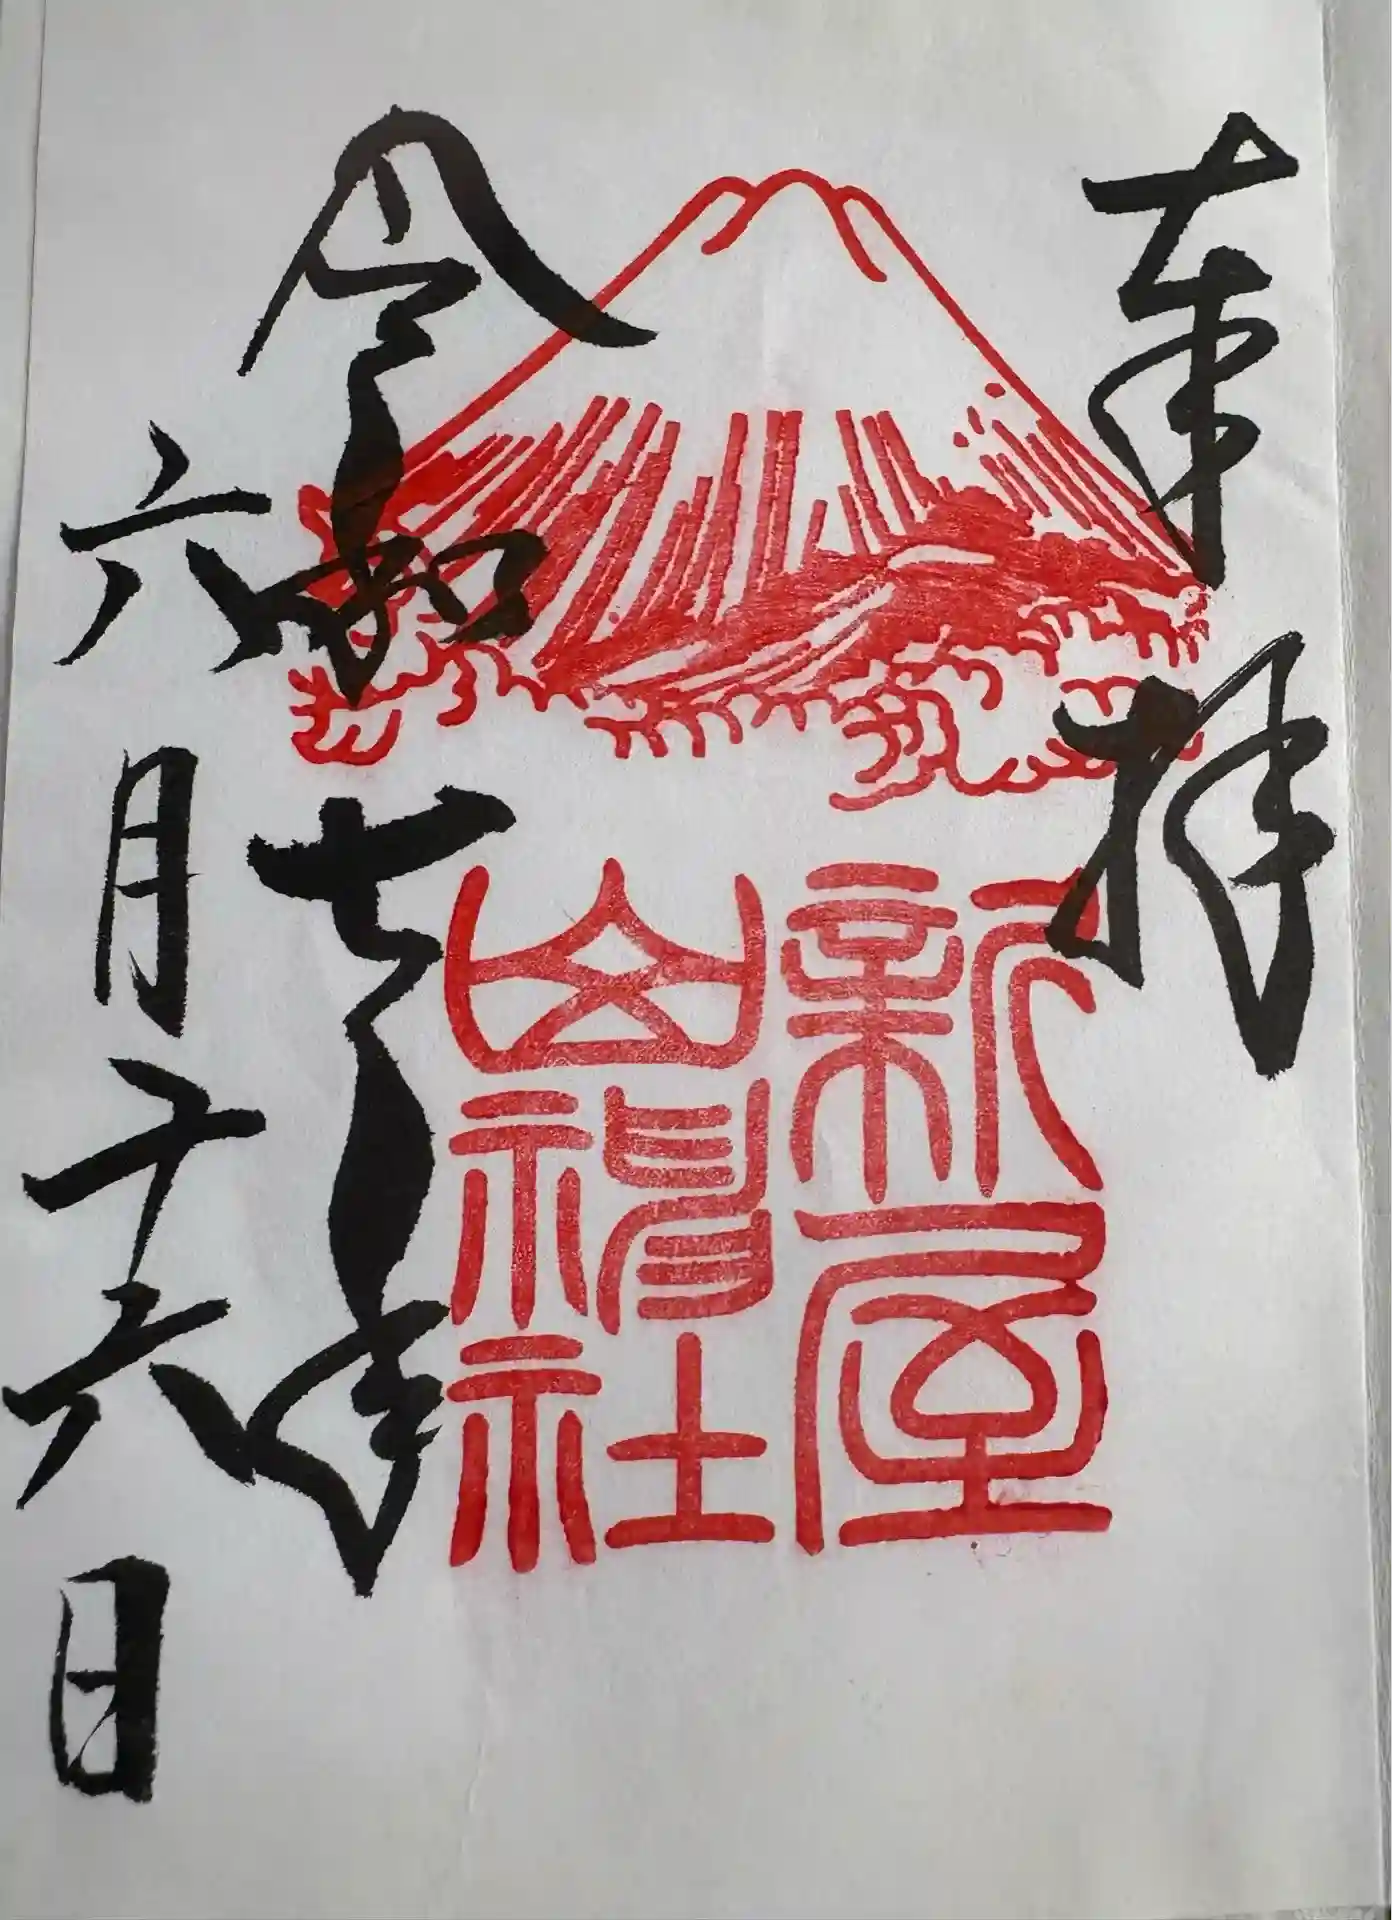 奉拝
新屋
山神社
令和七年
六月十六日